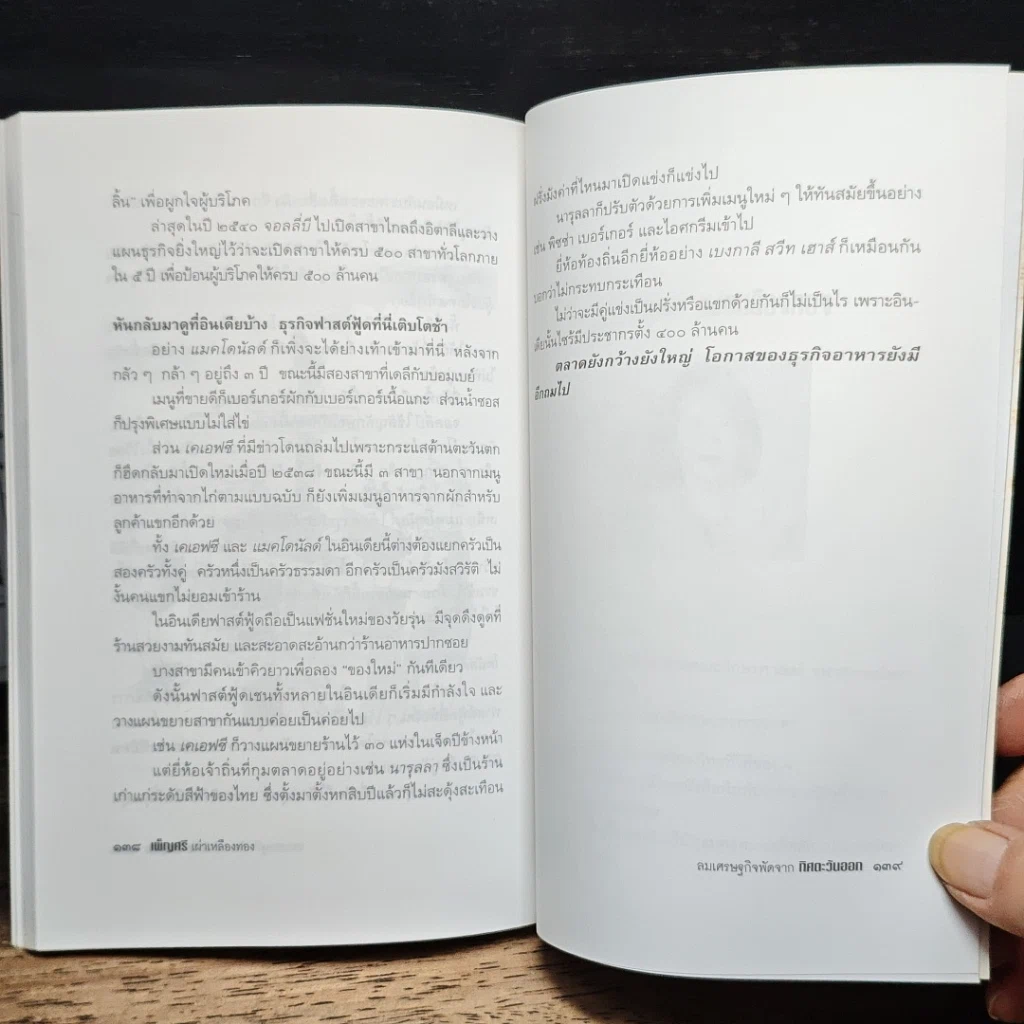 ลิ้น" เพื่อผูกใจผู้บริโภค
ล่าสุดในปี ๒๕๔๐ จอลลี่บี ไปเปิดสาขาไกลถึงอิตาลีและวาง
แผนธุรกิจยิ่งใหญ่ไว้ว่าจะเปิดสาขาให้ครบ ๕๐๐ สาขาทั่วโลกภาย
ใน ๕ ปี เพื่อป้อนผู้บริโภคให้ครบ ๕๐๐ ล้านคน
หันกลับมาดูที่อินเดียบ้าง ธุรกิจฟาสต์ฟู้ดที่นี่เติบโตช้า
อย่าง แมคโดนัลด์ ก็เพิ่งจะได้ย่างเท้าเข้ามาที่นี่ หลังจาก
กลัว ๆ กล้า ๆ อยู่ถึง ๓ ปี ขณะนี้มีสองสาขาที่เดลีกับบอมเบย์
เมนูที่ขายดีก็เบอร์เกอร์ผักกับเบอร์เกอร์เนื้อแกะ ส่วนน้ำซอส
ก็ปรุงพิเศษแบบไม่ใส่ไข่
ส่วน เคเอฟซี ที่มีข่าวโดนถล่มไปเพราะกระแสต้านตะวันตก
ก็ฮึดกลับมาเปิดใหม่เมื่อปี ๒๕๓๘ ขณะนี้มี ๓ สาขา นอกจากเมนู
อาหารที่ทำจากไก่ตามแบบฉบับ ก็ยังเพิ่มเมนูอาหารจากผักสำหรับ
ลูกค้าแขกอีกด้วย
ทั้ง เคเอฟซี และ แมคโดนัลด์ ในอินเดียนี้ต่างต้องแยกครัวเป็น
สองครัวทั้งคู่ ครัวหนึ่งเป็นครัวธรรมดา อีกครัวเป็นครัวมังสวิรัติ ไม่
งั้นคนแขกไม่ยอมเข้าร้าน
ในอินเดียฟาสต์ฟู้ดถือเป็นแฟชั่นใหม่ของวัยรุ่น มีจุดดึงดูดที่
ร้านสวยงามทันสมัย และสะอาดสะอ้านกว่าร้านอาหารปากซอย
บางสาขามีคนเข้าคิวยาวเพื่อลอง "ของใหม่" กันทีเดียว
ดังนั้นฟาสต์ฟู้ดเชนทั้งหลายในอินเดียก็เริ่มมีกำลังใจ และ
วางแผนขยายสาขากันแบบค่อยเป็นค่อยไป
เช่น เคเอฟซี ก็วางแผนขยายร้านไว้ ๓๐ แห่งในเจ็ดปีข้างหน้า
แต่ยี่ห้อเจ้าถิ่นที่กุมตลาดอยู่อย่างเช่น นารุลลา ซึ่งเป็นร้าน
เก่าแก่ระดับสีฟ้าของไทย ซึ่งตั้งมาตั้งหกสิบปีแล้วก็ไม่สะดุ้งสะเทือน
๑๓๘ เพ็ญศรี เผ่าเหลืองทอง
ฝรั่งมังค่าที่ไหนมาเปิดแข่งก็แข่งไป
นารุลลาก็ปรับตัวด้วยการเพิ่มเมนูใหม่ ๆ ให้ทันสมัยขึ้นอย่าง
เช่น พิซซ่า เบอร์เกอร์ และไอศกรีมเข้าไป
ยี่ห้อท้องถิ่นอีกยี่ห้ออย่าง เบงกาลี สวีท เฮาส์ ก็เหมือนกัน
บอกว่าไม่กระทบกระเทือน
ไม่ว่าจะมีคู่แข่งเป็นฝรั่งหรือแขกด้วยกันก็ไม่เป็นไร เพราะอิน-
เดียนั้นไซร้มีประชากรตั้ง ๔๐๐ ล้านคน
ตลาดยังกว้างยังใหญ่ โอกาสของธุรกิจอาหารยังมี
อีกถมไป
ลมเศรษฐกิจพัดจาก ทิศตะวันออก ๑๓๙